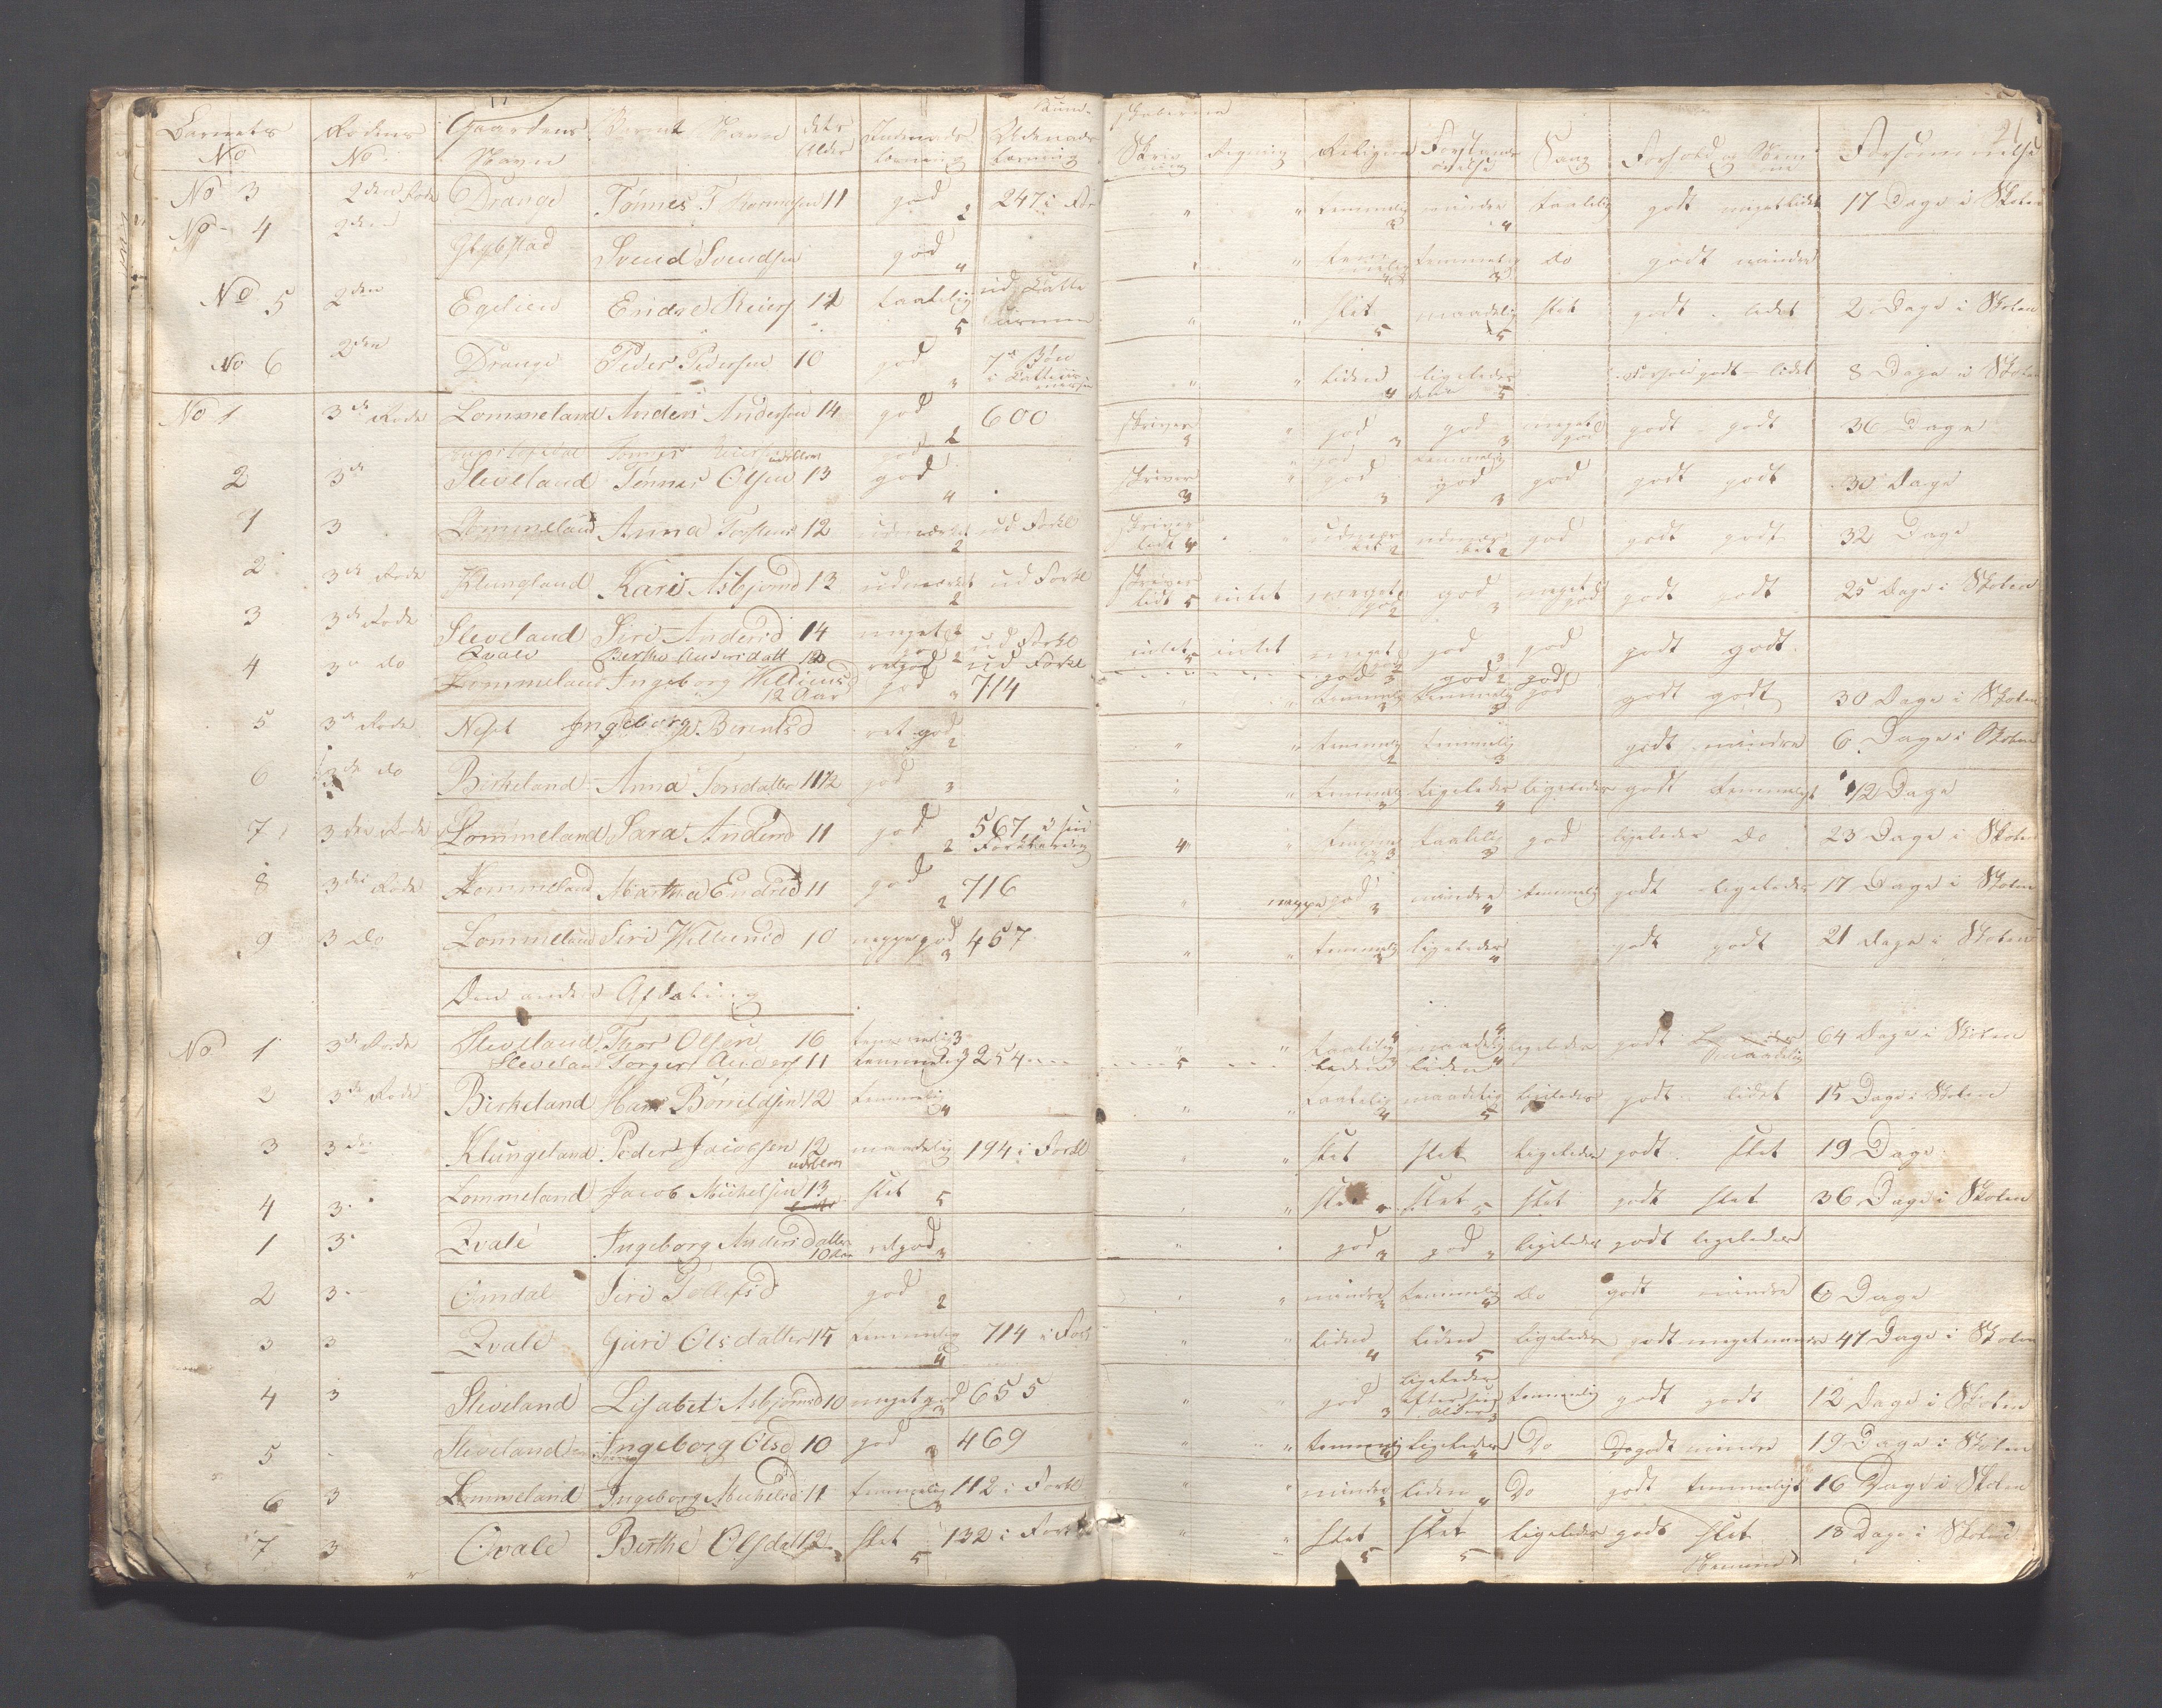 Barnets No Rodens No. Gaardens Navn Barnets Navn dets Alder Indenads læsning Udenads læsning Skriv ning Regning Religion Forstands øvelse Sang Forhold og Nem me Forsømmelse
21
No 3 2den Rode Drange Tønnes T 11 god 2 247 i For " " temmelig 3 mindre 4 taalelig godt meget lidet 17 Dage i Skolen
No 4 2den Svend Svendsen god 4 " " temmelig temmelig 3 do godt mindre
No 5 2den Egelien Endre 12 taalelig 5 ud " " slet 5 maadelig 5 slet godt lidet 2 Dage i Skolen
No 6 2den Drange Peder Pedersen 10 god 3 7de Bøn i " " liden 4 ligeledes 5 Forhold godt lidet 8 Dage i Skolen
No 1 3die Rode Lommeland Anders Andersen 14 god 2 600 skriver " god 3 god 3 meget god godt godt 36 Dage
2 3die Sleveland Tønnes Olsen 13 god 4 skriver 3 " god 3 god 3 god godt godt 30 Dage
1 3 Lommeland Anna 12 udmærket 2 ud Forkl skriver lidt 4 " udmær ket 2 udmær ket 2 god godt godt 32 Dage
2 3die Rode Klungland Kari Asbjørnsd 13 udmærket 2 ud Forkl skriver lidt 5 intet meget god 2 god 3 meget god godt godt 25 Dage i Skolen
3 3die Rode Sleveland Siri Andersd 14 meget god 2 ud Forkl intet 5 intet meget god 2 god 3 god godt godt
Qvale Berthe Andersdatt ret god ud Forkl god 3 god 2 god
4 3 do Lommeland Ingeborg 12 Aar god 3 714 " " temmelig temmelig 3 god godt godt 30 Dage i Skolen
5 3die Rode Ingeborg Berentsd ret god 2 " " temmelig 2 temmelig 3 godt mindre 6 Dage i Skolen
6 3die do Birkeland Anna Torsdatter 12 god 3 " " temmelig ligeledes 4 ligeledes godt temmeligt 12 Dage
7 3die Rode Lommeland Sara Andersd 11 god 2 567 i sin Forklaring 4 " temme lig 3 taalelig 3 god ligeledes do 23 Dage i Skolen
8 3die Rode Lommeland Martha Endresd 11 god 2 716 " neppe god 3 mindre 4 temmelig godt ligeledes 17 Dage i Skolen
9 3 do Lommeland Siri 10 neppe god 3 457 " " temmelig 3 ligeledes 4 godt godt 21 dage i Skolen
Den anden Afdeling
No 1 3die Rode Sleveland Thor Olsen 16 temmelig 3 " " taalelig 4 maadelig 4 ligeledes godt maadelig 64 Dage i Skolen
Sleveland Torger Anders 11 temmelig 3 254 5 liden liden 4
2 3die Rode Birkeland Hans Børreldsen 12 temmelig 4 " " taalelig 4 maadelig 5 ligeledes godt lidet 15 Dage i Skolen
3 3die Klungeland Peder Jacobsen 12 maadelig 194 i Forkl " " slet slet ligeledes godt slet 19 Dage
4 3 Lommeland Jacob Michelsen 13 slet 5 " slet slet 5 slet godt slet 36 Dage i Skolen
1 3 Qvale Ingeborg Andersdatter 10 Aar ret god 3 " god 3 god 3 ligeledes godt ligeledes
2 3 Omdal Siri Tollefsd god 2 " mindre temmelig 4 do godt mindre 6 Dage
3 3 Qvale Guri Olsdatter 15 temmelig 4 714 i Fork " " liden 4 liden 5 ligeledes godt meget mindre 47 Dage i Skolen
4 3 Sleveland Lisabet Asbjørnsd 10 meget god 3 655 " " god 3 ligeledes efter sin Alder 3 temmelig godt godt 12 Dage i Skolen
5 - Sleveland Ingeborg Olsd 10 god 3 469 " " temmelig 4 ligeledes 4 Do godt mindre 19 Dage i Skolen
6 3 Lommeland Ingeborg Michelsd 11 temmelig 3 112 i Forkl " " mindre liden 4 Do godt temmeligt 16 Dage i Skolen
7 3 Qvale Berthe Olsdatt 12 slet 5 132 i Forkl " " slet 5 slet 5 ligeledes godt slet 18 Dage i Skolen